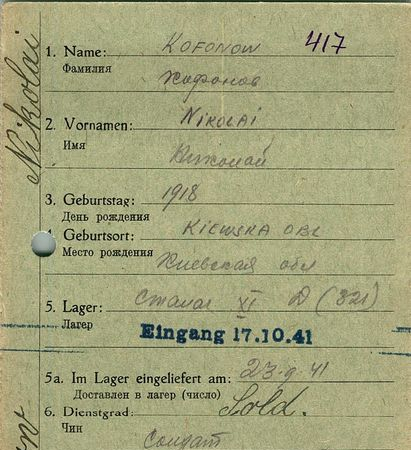 Nikolai
1. Name: KOFONOW 417
Фамилия Хофонов
2. Vornamen: NIKOLAI
Имя Николай
3. Geburtstag: 1918
День рождения
4. Geburtsort: KIEWSKA OBL
Место рождения Киевская обл
5. Lager: Сталаг XI D (321)
Лагер
Eingang 17.10.41
5a. Im Lager eingeliefert am: 23.9.41
Доставлен в лагер (число)
6. Dienstgrad: Sold.
Чин Солдат